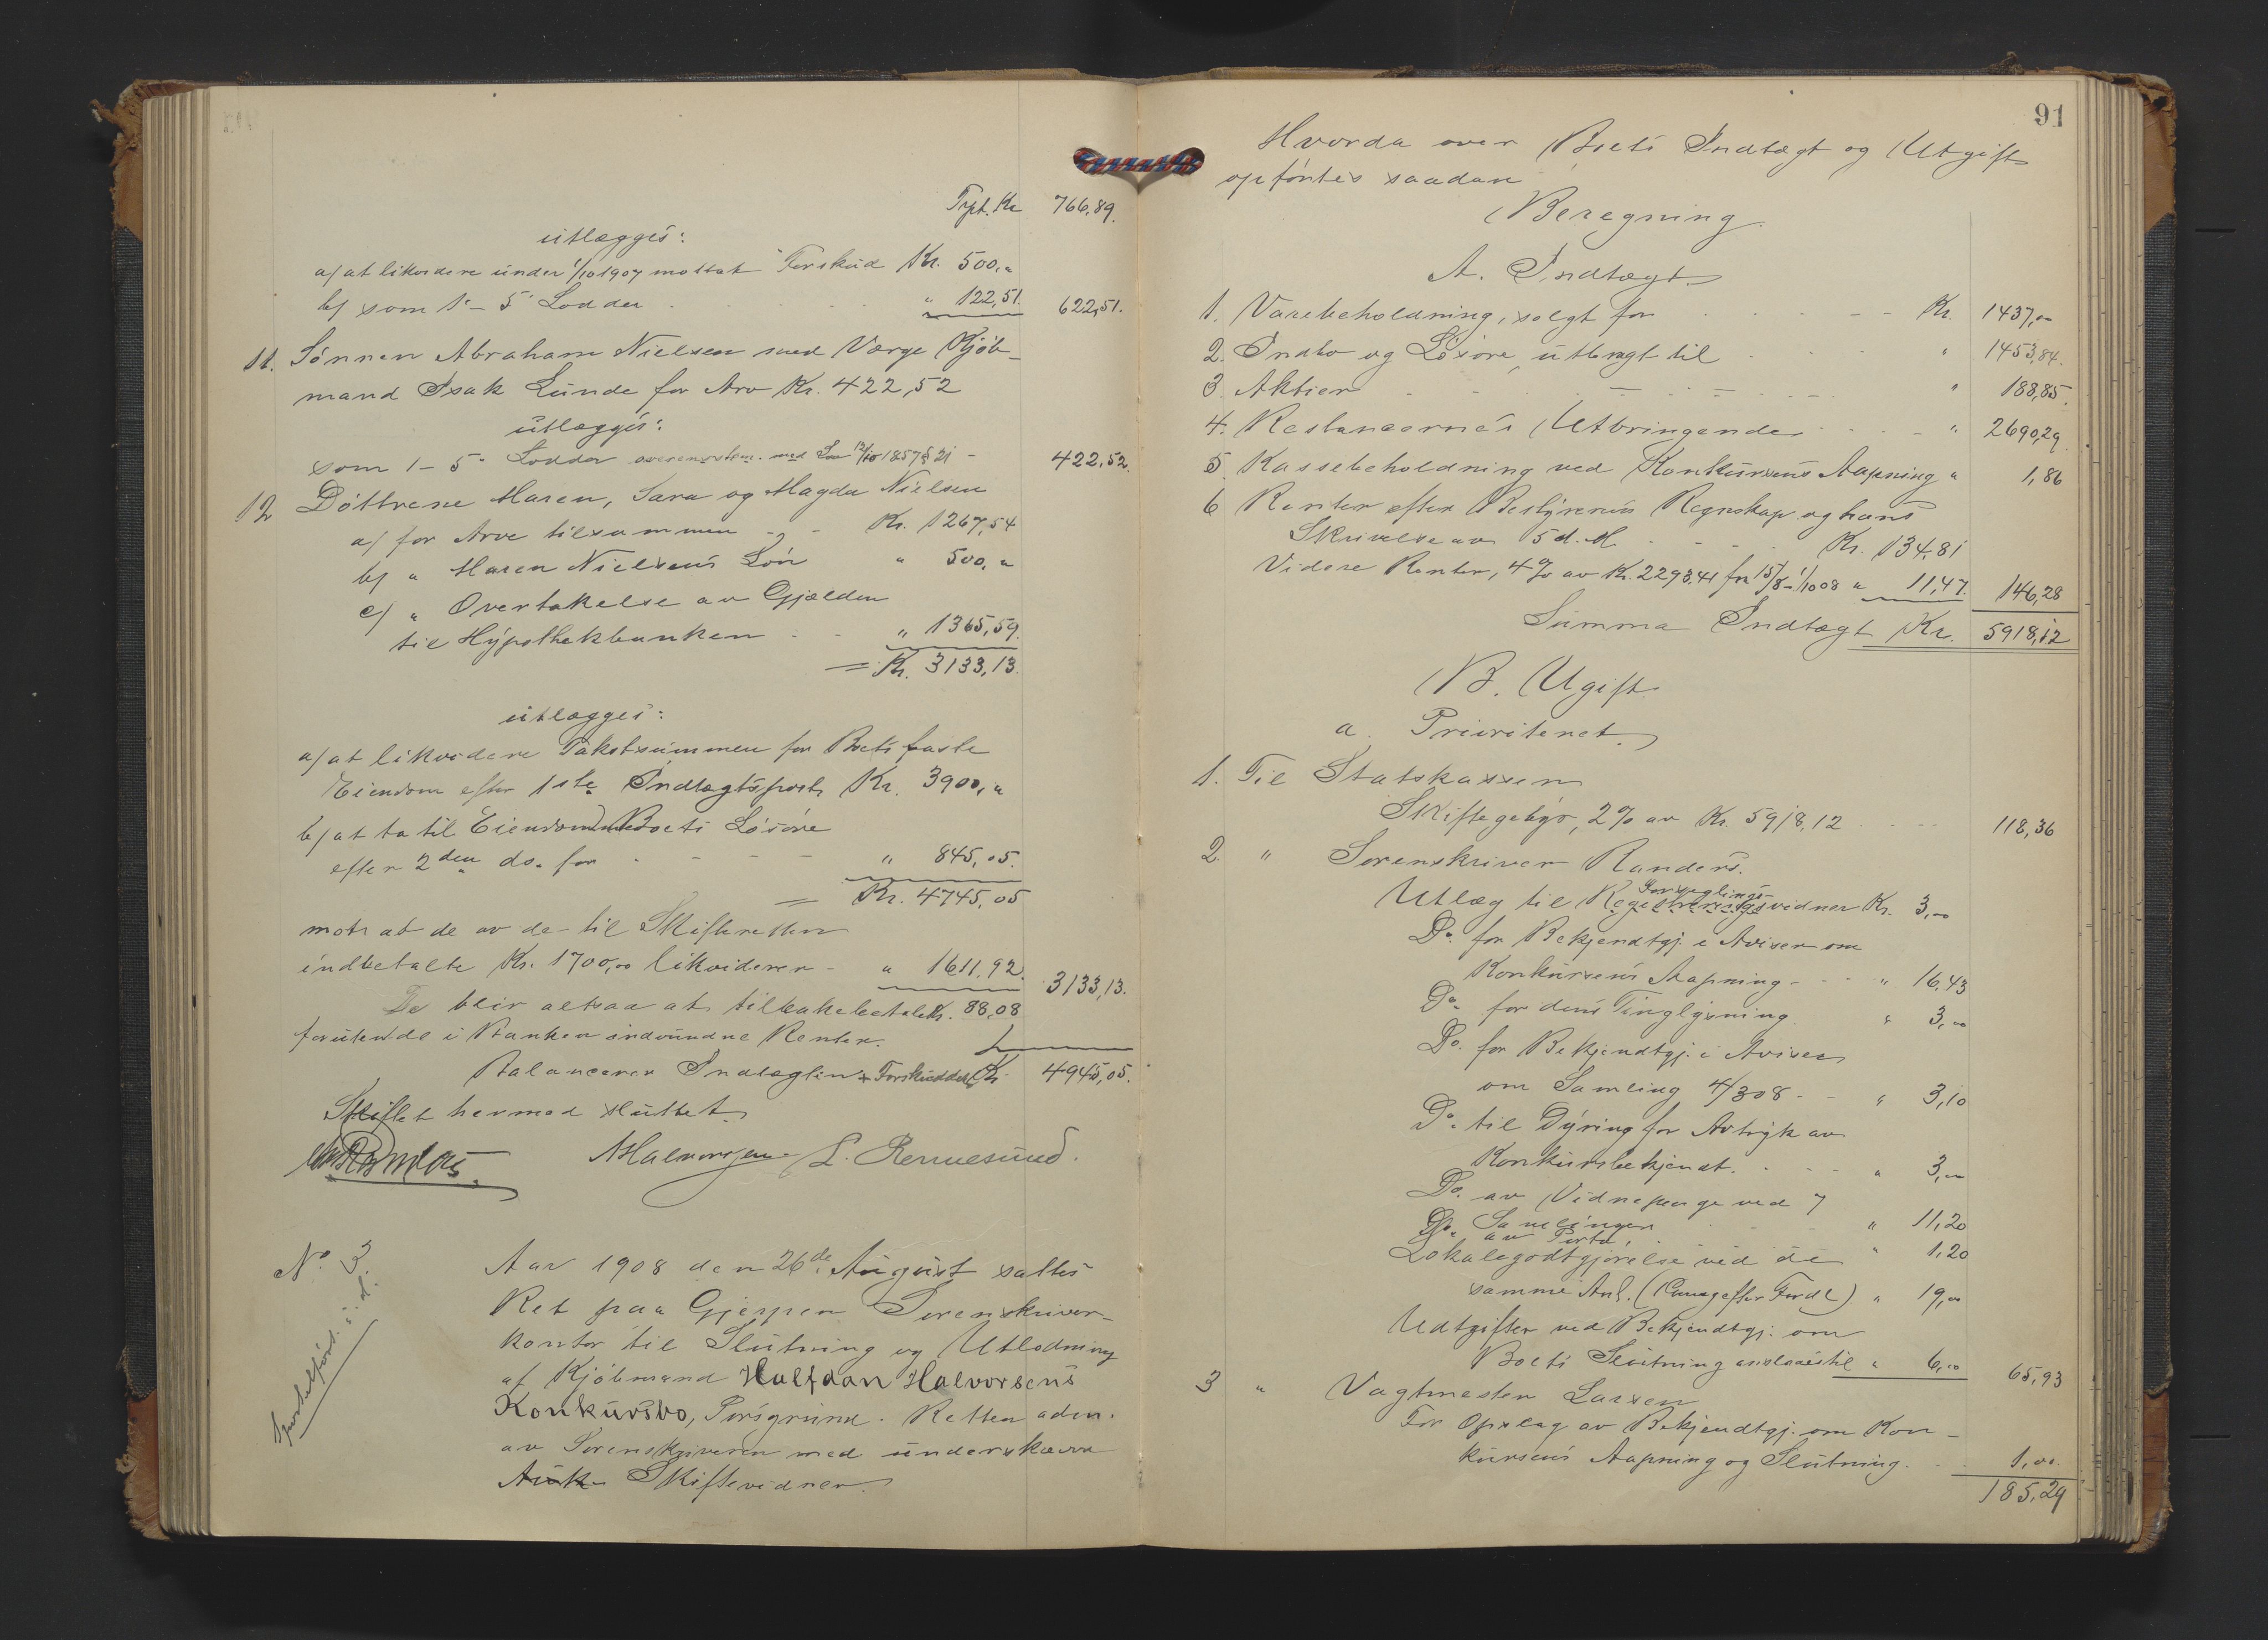 Trpt. Kr 766,89.
utlægges:
a/ at likvidere under 1/10 1907 mottat Forskud Kr. 500,"
b/ som 1 - 5 Lodder " 122,51. 622,51.
11. Sønnen Abraham Nielsen med Værge Kjøb-
mand Isak Lunde for Arv Kr. 422,52
utlægges:
som 1 - 5 Lodder overensstem. med Lov 1857 § 21 - 422,52.
12 Døttrene Maren, Sara og Magda Nielsen
a/ for Arv tilsammen - - Kr. 1267,54
b/ " Maren Nielsens Løn " 500,"
c/ " Overtakelse av Gjælden
til Hypothekbanken - - " 1365,59.
= Kr. 3133,13.
utlægges:
a/ at likvidere Takstsummen for Boets faste
Eiendom efter 1ste Indtægtspost Kr. 3900,"
b/ at ta til Eiendom Boets Løsøre
efter 2den do. for - - - - " 845,05.
= Kr. 4745,05
mot at de av de til Skifteretten
indbetalte Kr. 1700,00 likviderer - " 1611,92. 3133,13.
De blir altsaa at tilbakebetale Kr. 88,08
foruten de i Banken indvundne Renter.
Balancerer Indtægten + Forskuddet Kr. 4945,05.
Skiftet hermed sluttet.
AHalvorsen L. Rennesund.
No. 3.
Sportelført i d.
Aar 1908 den 26de August sattes
Ret paa Gjerpen Sorenskriver-
kontor til Slutning og Utlodning
af Kjøbmand Halfdan Halvorsens
Konkursbo, Porsgrund. Retten adm.
av Sorenskriveren med underskrevne
Skiftevidner.
91
Hvorda over Boets Indtægt og Utgift
opførtes saadan
Beregning.
A. Indtægt
1. Varebeholdning, solgt for - - Kr. 1437,00
2. Indbo og Løsøre, utbragt til " 1453,84.
3. Aktier " 188,85.
4. Restancernes Utbringende " 2690,29.
5. Kassebeholdning ved Konkursens Aapning " 1,86
6 Renter efter Bestyrerens Regnskap og hans
Skrivelse av 5 d. M. Kr. 134,81
Videre Renter, 4% av Kr. 2293,41 fra 15/8 - 1/10 08 " 11,47. 146,28
Summa Indtægt Kr. 5918,12
B. Ugift
a. Prioriteret.
1. Til Statskassen
Skiftegebyr, 2% av Kr. 5918,12 118,36
2. " Sorenskriver Randers.
Forseglings-
Utlæg til Registreringsvidner Kr. 3,00
Do. for Bekjendtgj. i Aviser om
Konkursens Aapning - - " 16,43
Do. for dens Tinglysning " 3,00
Do. for Bekjendtgj. i Aviser
om Samling 4/3 08 - - " 3,10
Do. til Dyring for Avtryk av
Konkursbekjendt. " 3,00
Do. av Vidnepenge ved 7
Samlinger " 11,20
Do. av Porto. " 1,20
Lokalegodtgjørelse ved de
samme Anl. " 19,00
Udtgifter ved Bekjendtgj. om
Boets Slutning anslaaes til " 6,00 65,93
3 " Vagtmester Larsen
For Opslag av Bekjendtgj. om Kon-
kursens Aapning og Slutning. 1,00.
185,29